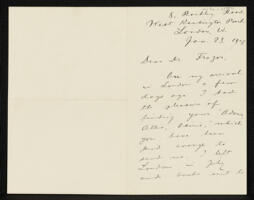 8, Road
West Kensington Park
London, W.
Jan. 23, 19
Dear Dr. Frazer,
On my arrival
in London a few
days ago I had
the pleasure of
finding your "Adonis,
Attis, Osiris," which
you have been
kind enough to
send me. I left
London in July
and went to